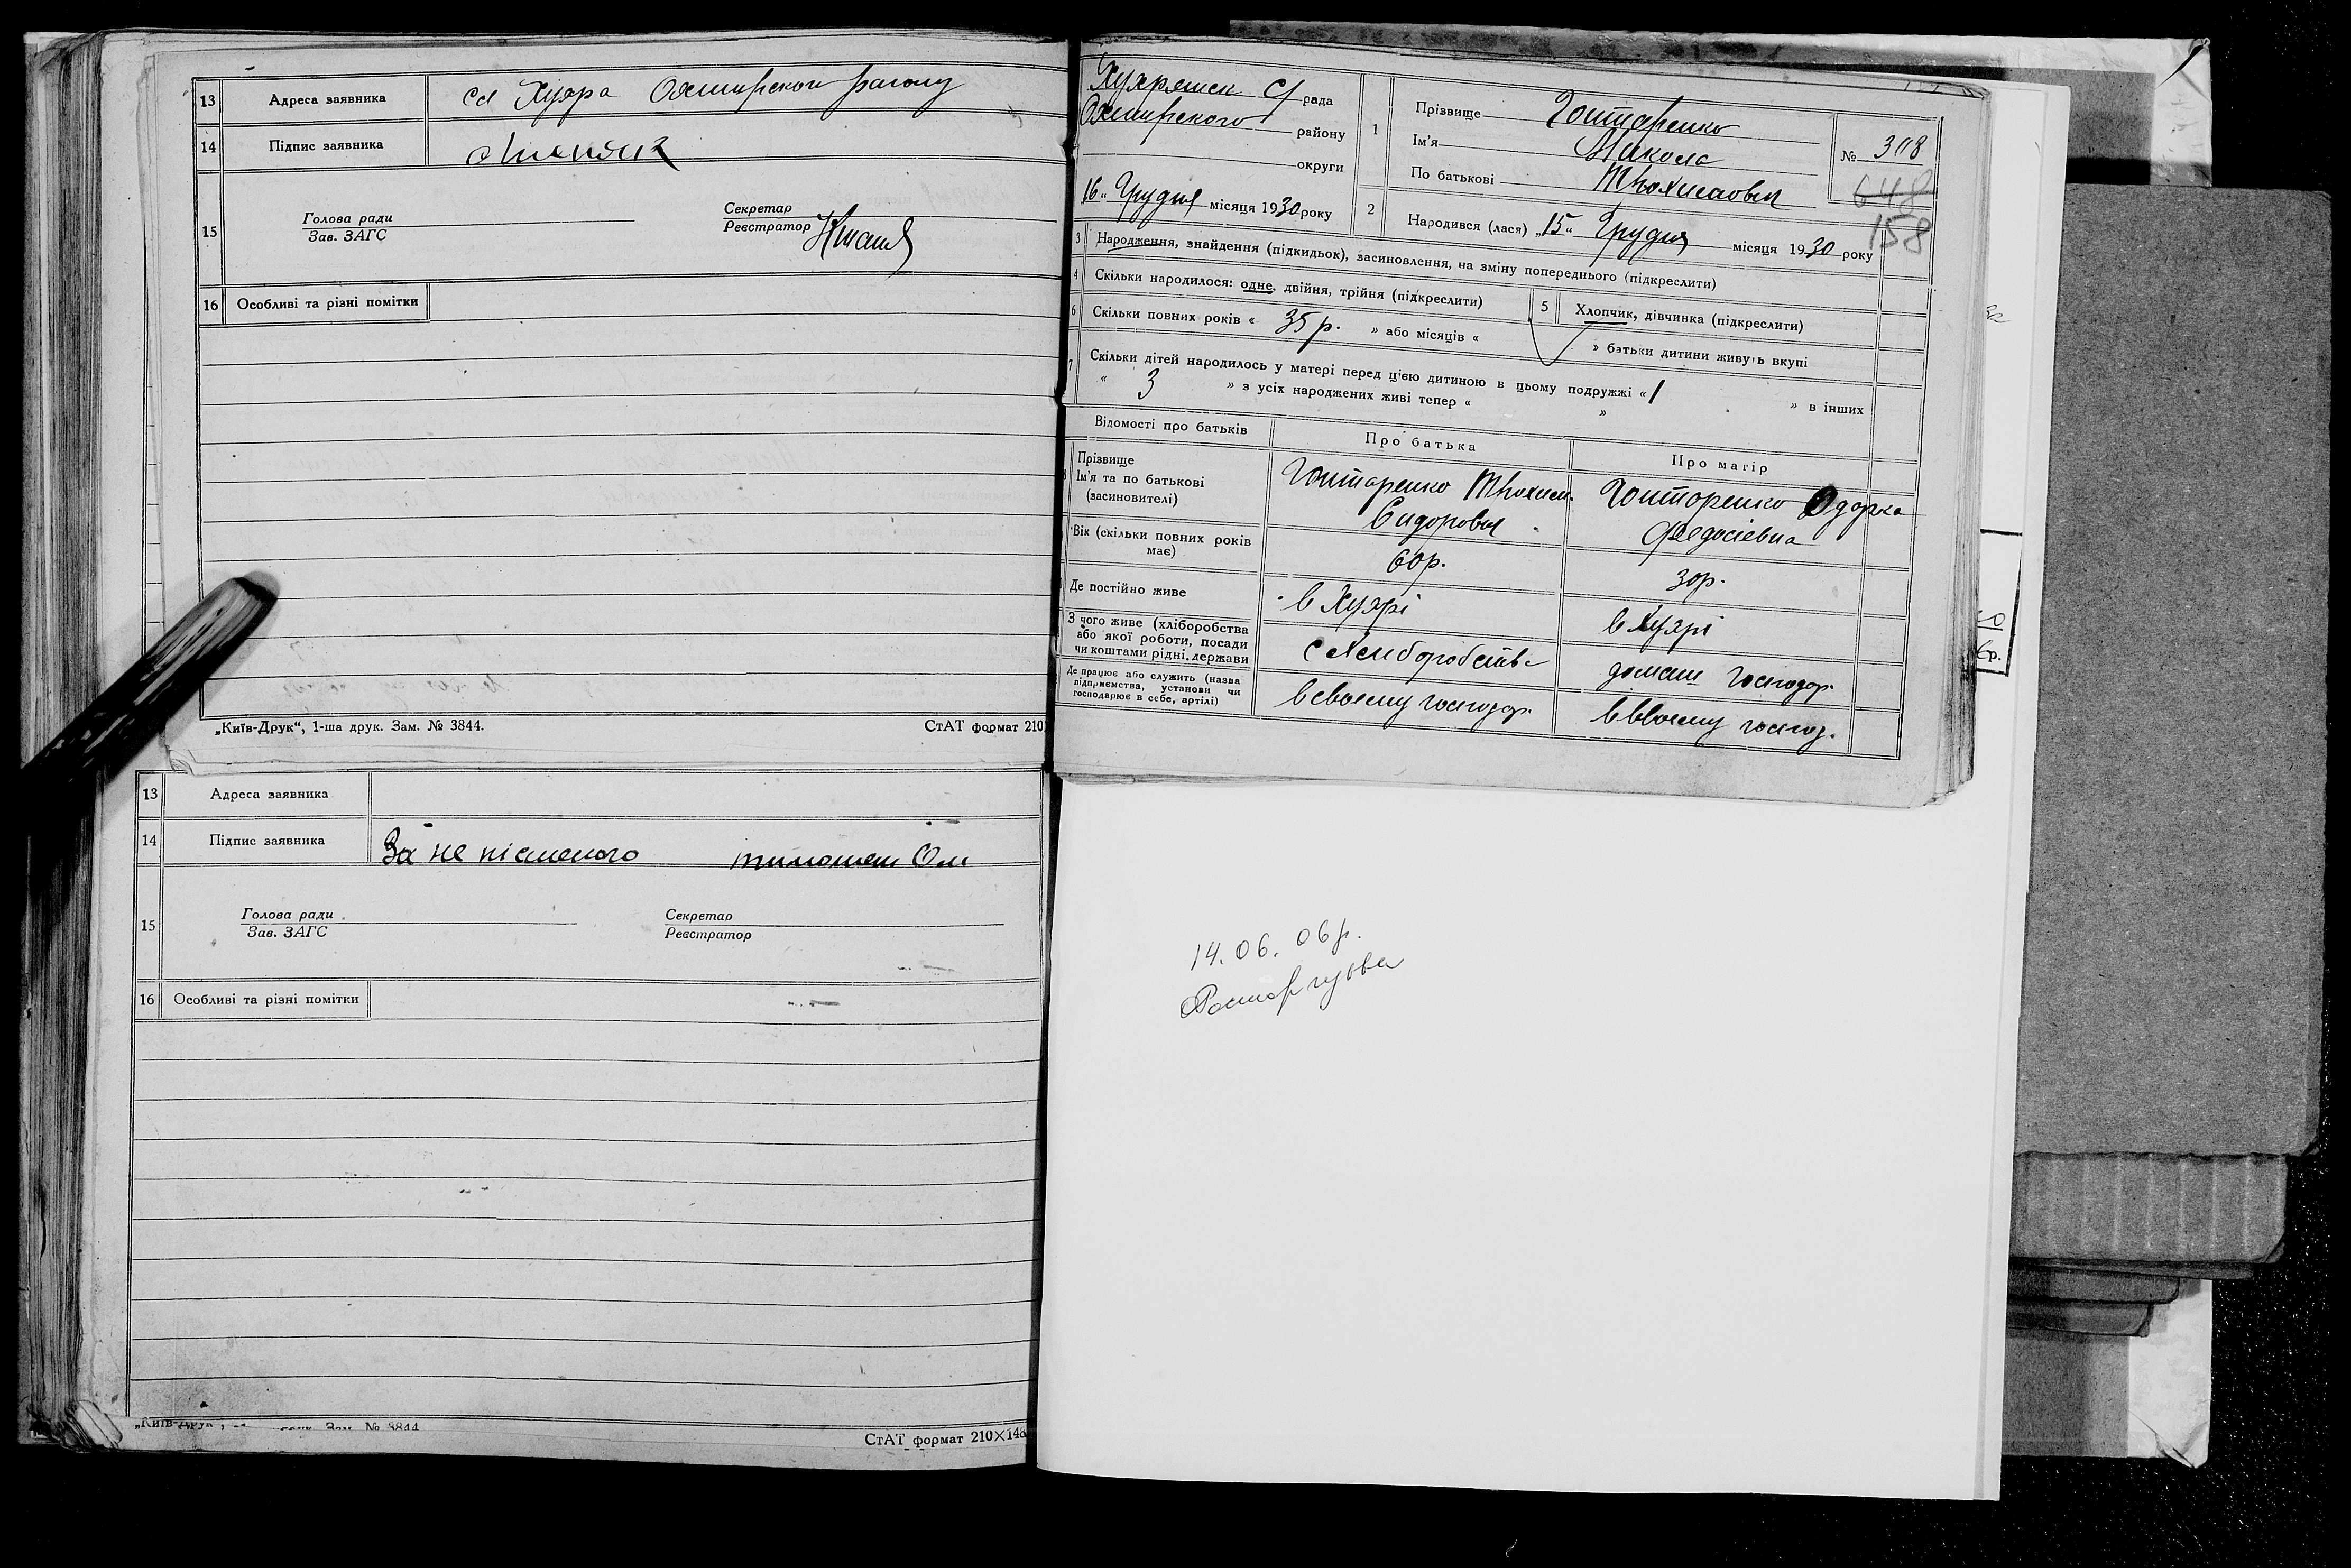 13 Адреса заявника сл Хухра Охтирского району
14 Підпис заявника
15 Голова ради
Зав. ЗАГС
Секретар
Реєстратор
16 Особливі та різні помітки
„Київ-Друк“, 1-ша друк. Зам. № 3844.
СтАТ формат 210
13 Адреса заявника
14 Підпис заявника За не письменого
15 Голова ради
Зав. ЗАГС
Секретар
Реєстратор
16 Особливі та різні помітки
Зам. № 3844
СтАТ формат 210×148
рада
Охтирского району
округи
16 „ Грудня місяця 1930 року
1 Прізвище Гонтаренко
Ім'я Микола
По батькові
№ 308
648
158
2 Народився (лася) „15“ Грудня місяця 1930 року
3 Народження, знайдення (підкидьок), засиновлення, на зміну попереднього (підкреслити)
4 Скільки народилося: одне, двійня, трійня (підкреслити)
5 Хлопчик, дівчинка (підкреслити)
6 Скільки повних років « 35 р. » або місяців « » батьки дитини живуть вкупі
7 Скільки дітей народилось у матері перед цією дитиною в цьому подружжі « 1 » в інших
« 3 » з усіх народжених живі тепер « »
Відомості про батьків
Про батька
Про матір
Прізвище
Ім'я та по батькові
(засиновителі)
Гонтаренко
Сидорович
Гонторенко Одарка
Федосіевна
Вік (скільки повних років
має)
60р.
30р.
Де постійно живе
в Хухрі
в Хухрі
З чого живе (хліборобства
або якої роботи, посади
чи коштами рідні, держави
домаш господар.
Де працює або служить (назва
підприємства, установи чи
господарює в себе, артілі)
в своему господар.
в своему господ.
14.06.06р.